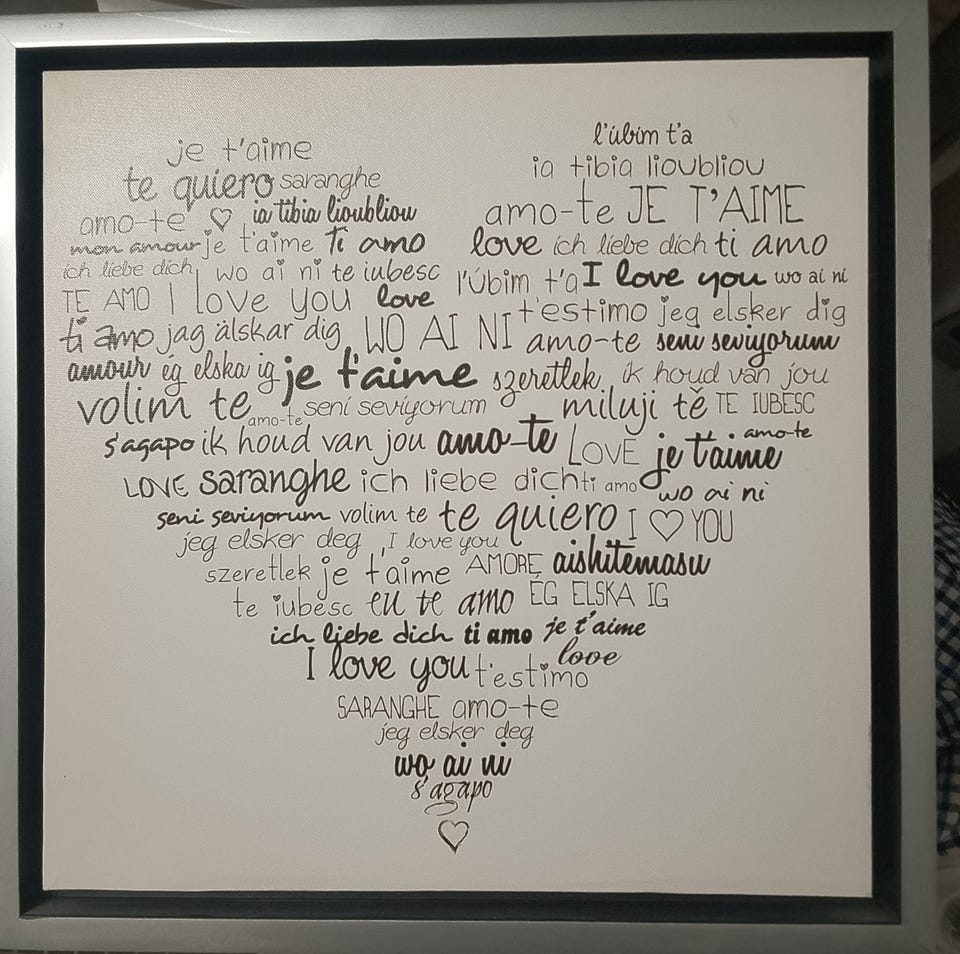 je t'aime
l'úbim t'a
te quiero saranghe
ia tibia lioubliou
amo-te ♡ ia tibia lioubliou
amo-te JE T'AIME
mon amour je t'aime Ti amo
love ich liebe dich ti amo
ich liebe dich wo ai ni te iubesc
l'úbim t'a I love you wo ai ni
TE AMO I love you love
t'estimo jeg elsker dig
ti amo jag älskar dig WO AI NI amo-te seni seviyorum
amour ég elska ig je t'aime szeretlek ik houd van jou
volim te amo-te seni seviyorum miluji tě TE IUBESC
s'agapo ik houd van jou amo-te LOVE je t'aime amo-te
LOVE saranghe ich liebe dich ti amo wo ai ni
seni seviyorum volim te te quiero I ♡ YOU
jeg elsker deg I love you
szeretlek je t'aime AMORE aishitemasu
te iubesc eu te amo ÉG ELSKA IG
ich liebe dich ti amo je t'aime
I love you t'estimo love
SARANGHE amo-te
jeg elsker deg
wo ai ni
s'agapo
♡